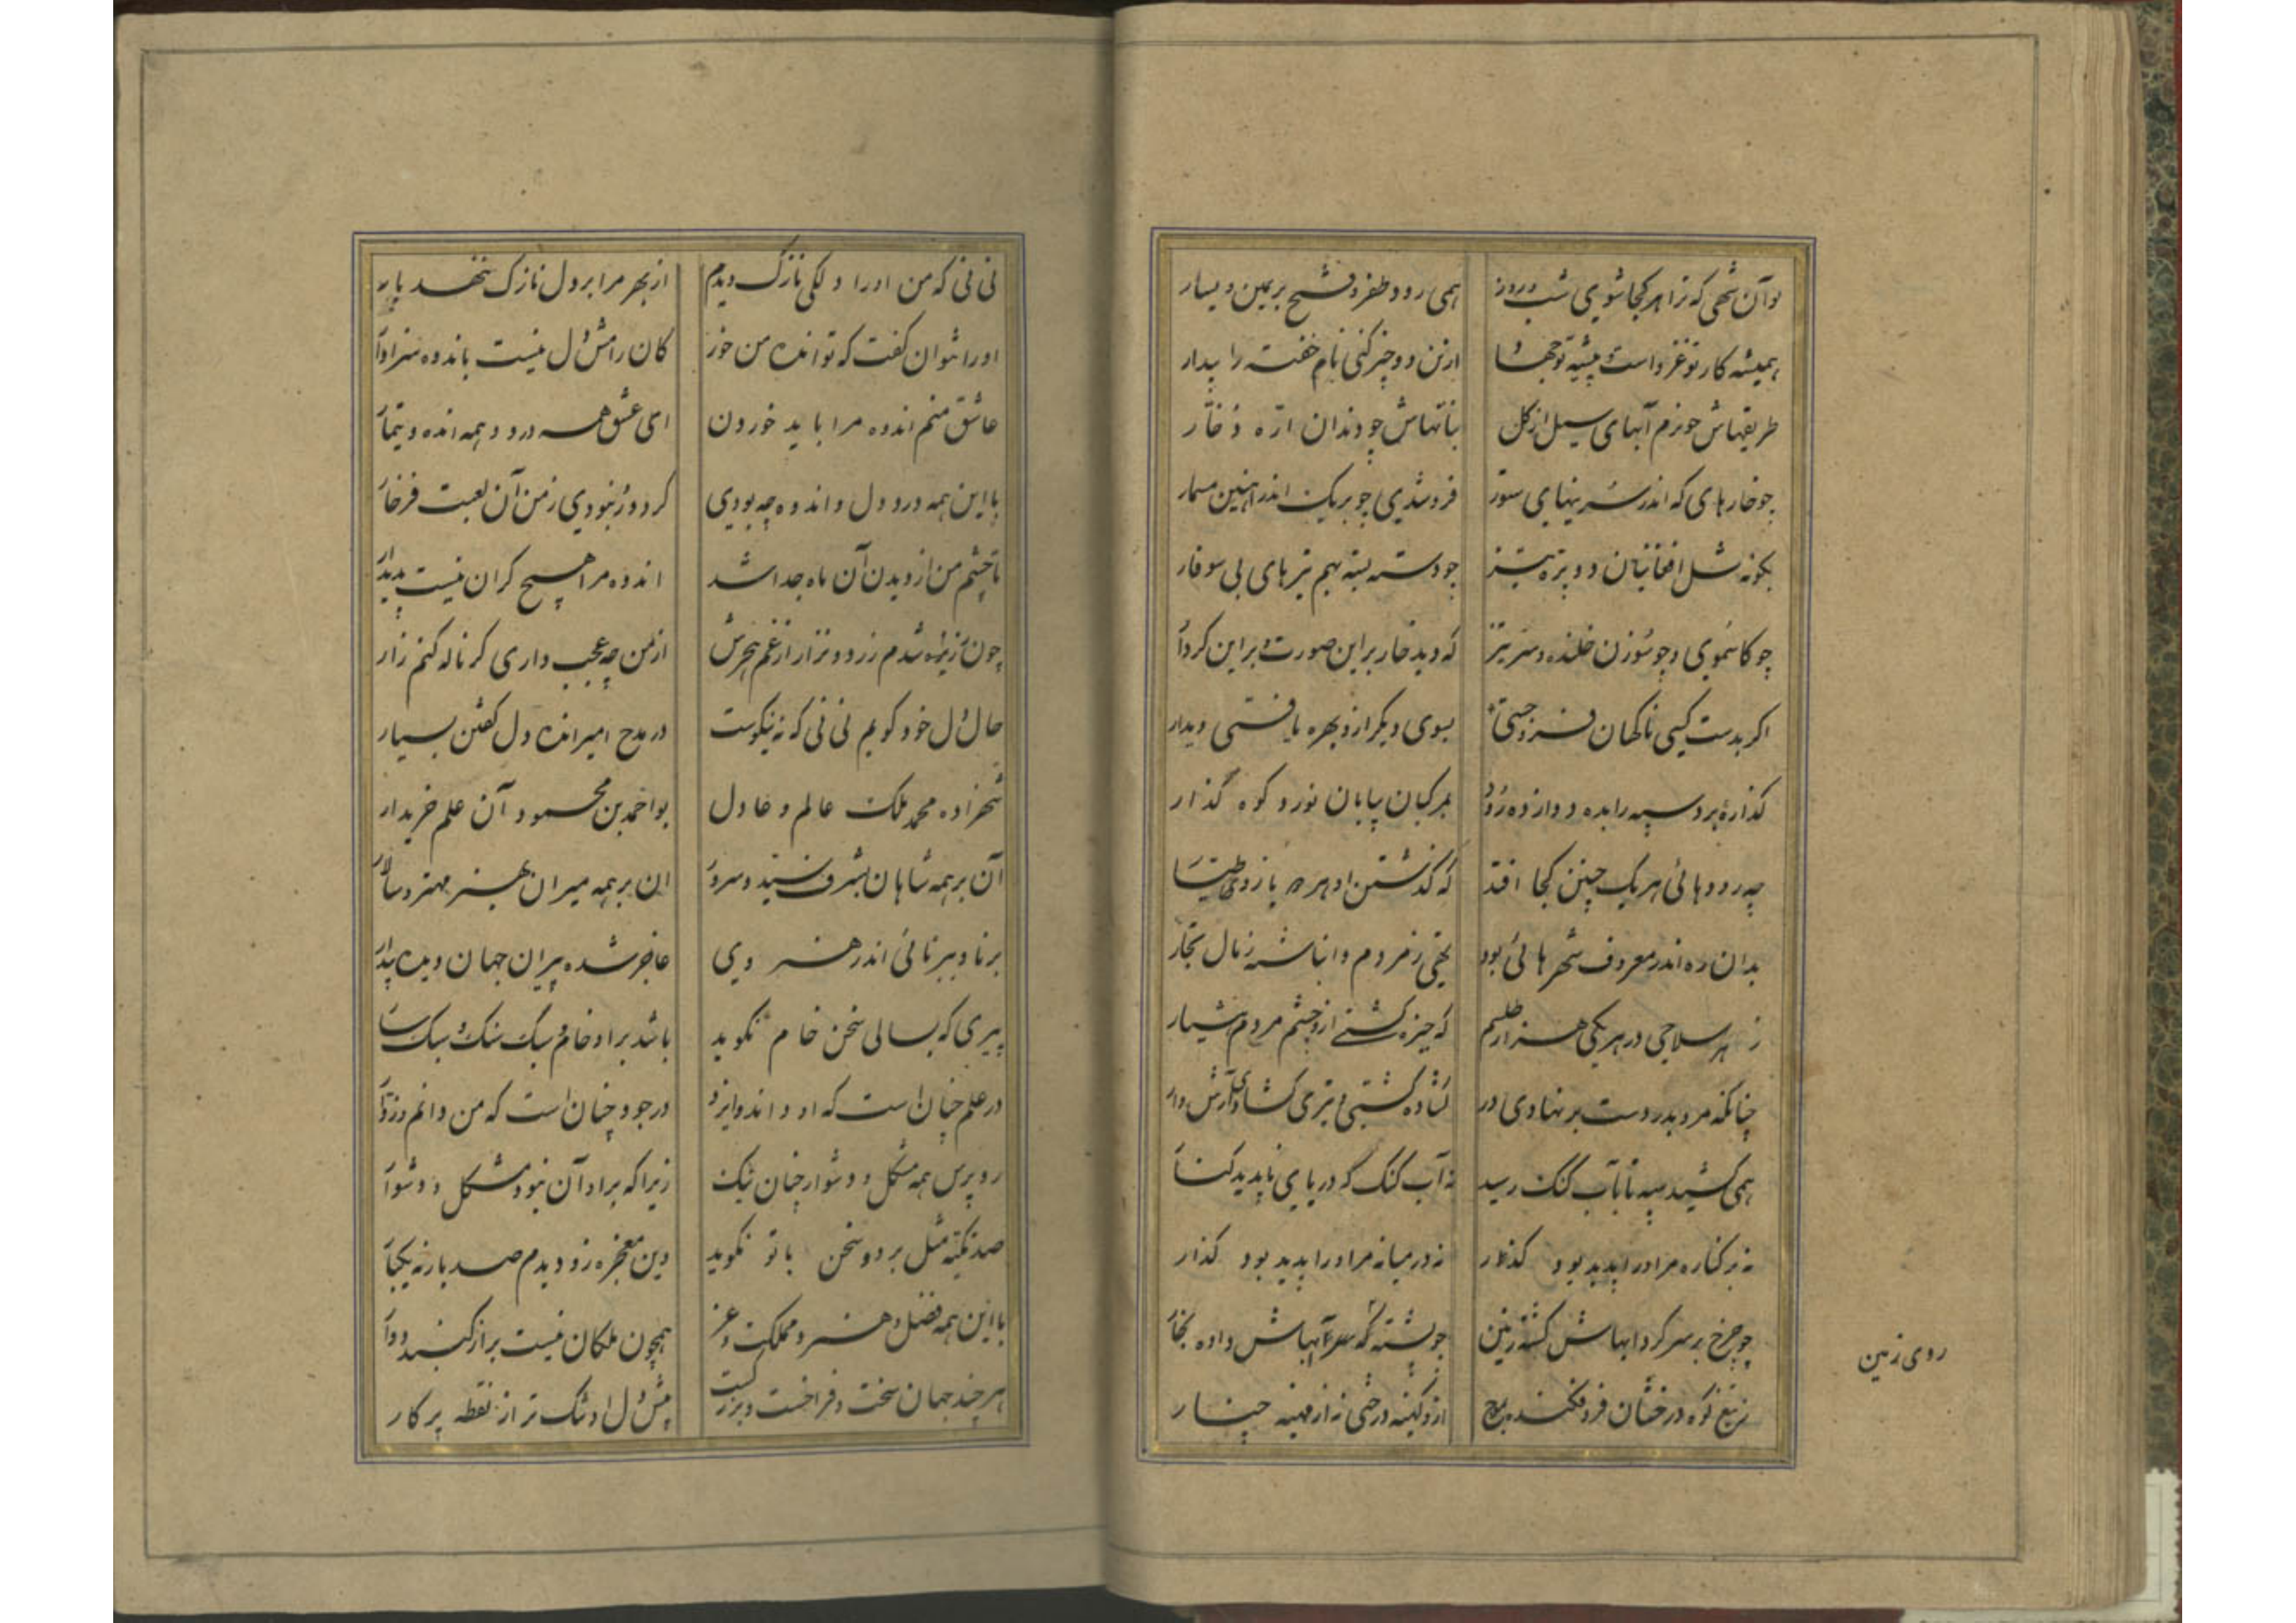 توآن شهی که ترا هر کجا شوی شب و روز همی رود ظفر و فتح بریمین و یسار
همیشه کار تو غزو است و پیشه تو جهاد ازین دو چیز کنی نام خفته را بیدار
طریقهاش چو نرم آبهای سیل از کل نباتهاش چو دندان اره
چو خارهای که اندر سرینهای ستور فرو شدی چو بریک اندر آهنین مسمار
بگونه شل افغانیان دو پره و تیز چو دسته بسته بهم تیرهای بی سوفار
چو کاسموی و چو سوزن خلنده و سر تیز که دید خار براین صورت و براین کردار
اگر بدست کسی ناگهان فرو جستی بسوی دیگر ازو بهره یافتی دیدار
گذاره برد سپه را بده دوازده رود بمرکبان بیابان نورد کوه گذار
چه رودهائی هریک چنین کجا افتد که گذشتن او هر
بدان ره اندر معروف شهرهائی بود تهی ز مردم و انباشته ز مال تجار
ز هر سلاحی در هر یکی هزار طلسم که خیره گشتی ازو چشم مردم هشیار
چنانکه مرد بدر دست بر نهادی در گشاده گشتی و تیری گشادی آرش وار
همی کشید سپه تا بآب گنگ رسید نه آب گنگ که دریای ناپدید کنار
نه بر کناره مر او را پدید بود گذار نه در میانه مر او را پدید بود گذار
چو چرخ بر سر گردابهاش گشته زمین چو پشته گه سر آبهاش داده بخار
ز تیغ کوه درختان فرو فکنده بموج ازو کهینه درختی نه از مهینه چنار
روی زمین
نی نی که من او را دلکی نازک دیدم از بهر مرا بر دل نازک ننهد بار
او را نتوان گفت که تو انده من خور کان رامش دل نیست باندوه سزاوار
عاشق منم اندوه مرا باید خوردن ای عشق همه درد و همه انده و تیمار
با این همه درد دل و اندوه چه بودی گر دور نبودی ز من آن لعبت فرخار
تا چشم من از دیدن آن ماه جدا شد اندوه مرا هیچ کران نیست پدیدار
چون زیر شدم زرد و نزار از غم هجرش از من چه عجب داری گر ناله کنم زار
حال دل خود گویم نی نی که نه نیکوست در مدح امیر انده دل گفتن بسیار
شهزاده محمد ملک عالم و عادل بو احمد بن محمود آن علم خریدار
آن بر همه شاهان بشرف سید و سرور ان بر همه میران بهنر مهتر و سالار
برنا و ببرنائی اندر هنر وی عاجز شده پیران جهان دیده بیدار
پیری که بسالی سخن خام نگوید باشد بر او خام و سبک سنگ و سبکسار
در علم چنان است که او داند و ایزد در جود چنان است که من دانم و زوار
رو پرس همه مشکل و دشوار جهان نیک زیرا که بر او آن نبود مشکل و دشوار
صد نکته مثل بر دو سخن با تو نگوید وین معجزه زو دیدم صد بار نه یکبار
با این همه فضل و هنر و مملکت و عز همچون ملکان نیست براز کبر و
هر چند جهان سخت فراخست و بزرگست پیش دل او تنگ تر از نقطه پرکار